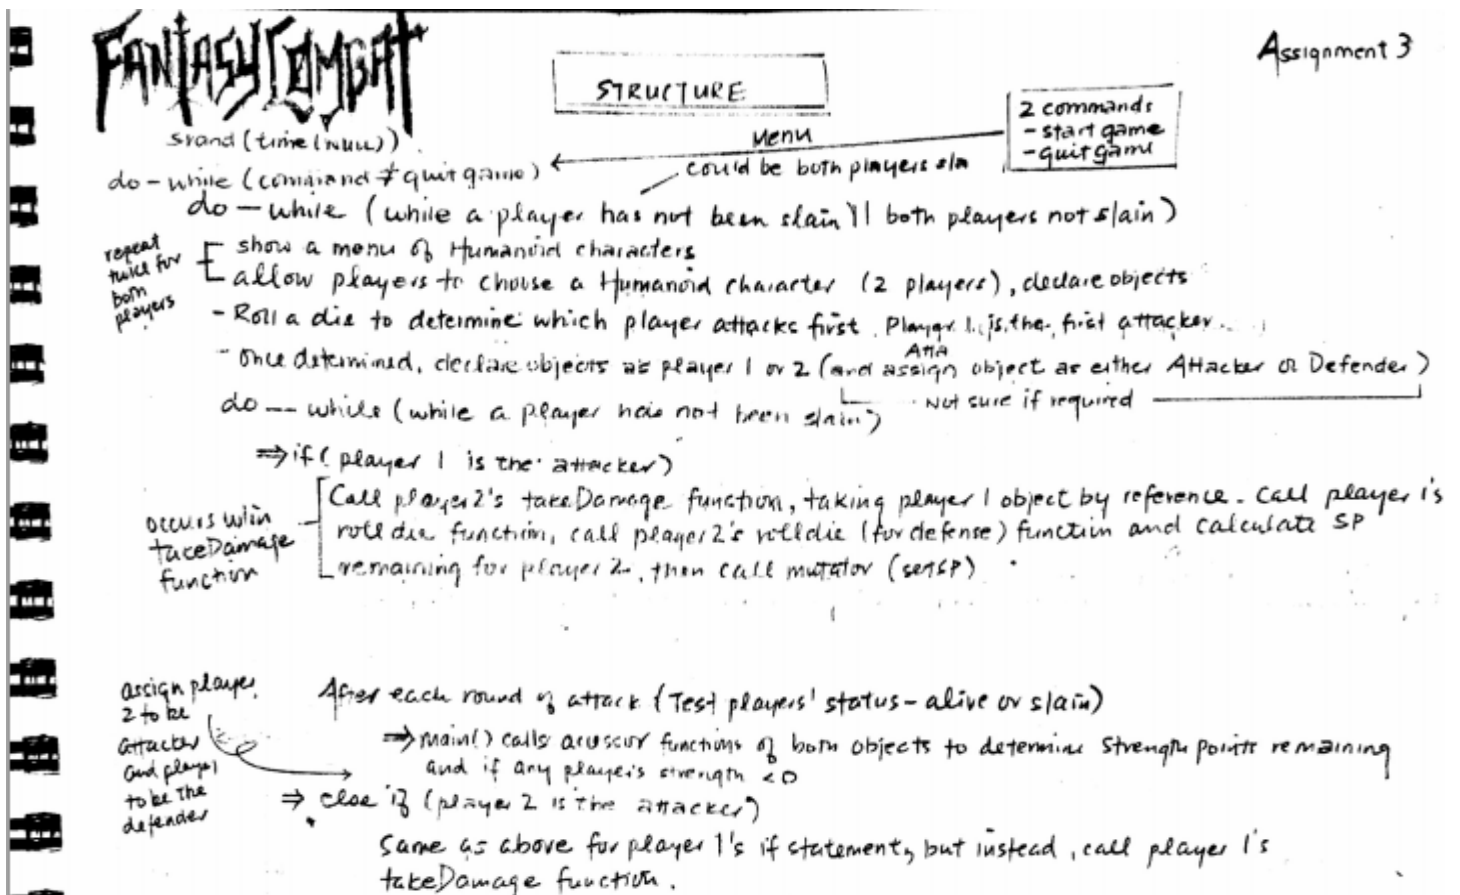 FANTASY COMBAT
Assignment 3
STRUCTURE
2 commands
- start game
- quit game
Menu
srand (time (NULL))
do - while (command ≠ quit game)
could be both players sla
do — while (while a player has not been slain || both players not slain)
repeat
twice for
both
players
show a menu of Humanoid characters
allow players to choose a Humanoid character (2 players), declare objects
- Roll a die to determine which player attacks first. Player 1 is the first attacker.
Atta
- Once determined, declare objects as player 1 or 2 (and assign object as either Attacker or Defender)
Not sure if required
do -- while (while a player has not been slain)
⇒ if (player 1 is the attacker)
occurs w/in
takeDamage
function
Call player 2's takeDamage function, taking player 1 object by reference. Call player 1's
roll die function, call player 2's roll die (for defense) function and calculate SP
remaining for player 2, then call mutator (setSP)
assign player
2 to be
attacker
and player 1
to be the
defender
After each round of attack (Test players' status - alive or slain)
⇒ main() calls accessor functions of both objects to determine Strength points remaining
and if any player's strength < 0
⇒ else if (player 2 is the attacker)
Same as above for player 1's if statement, but instead, call player 1's
takeDamage function.